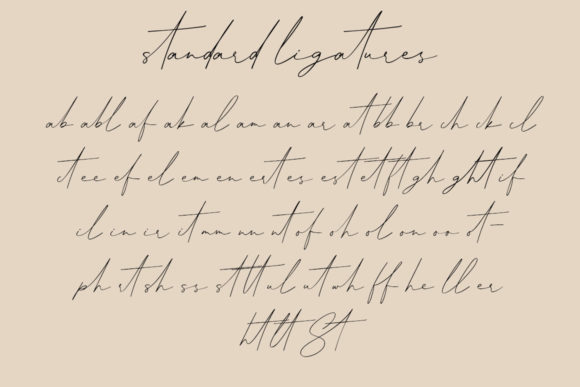 standard ligatures
ab abl af ak al am an ar at bb br ch ck cl
ct ee ef el em en er ct es est et ft gh ght if
il in ir it mm nn nt of oh ol on oo ot
ph rt sh ss st tt ul ut wh ff he ll er
ht tt St